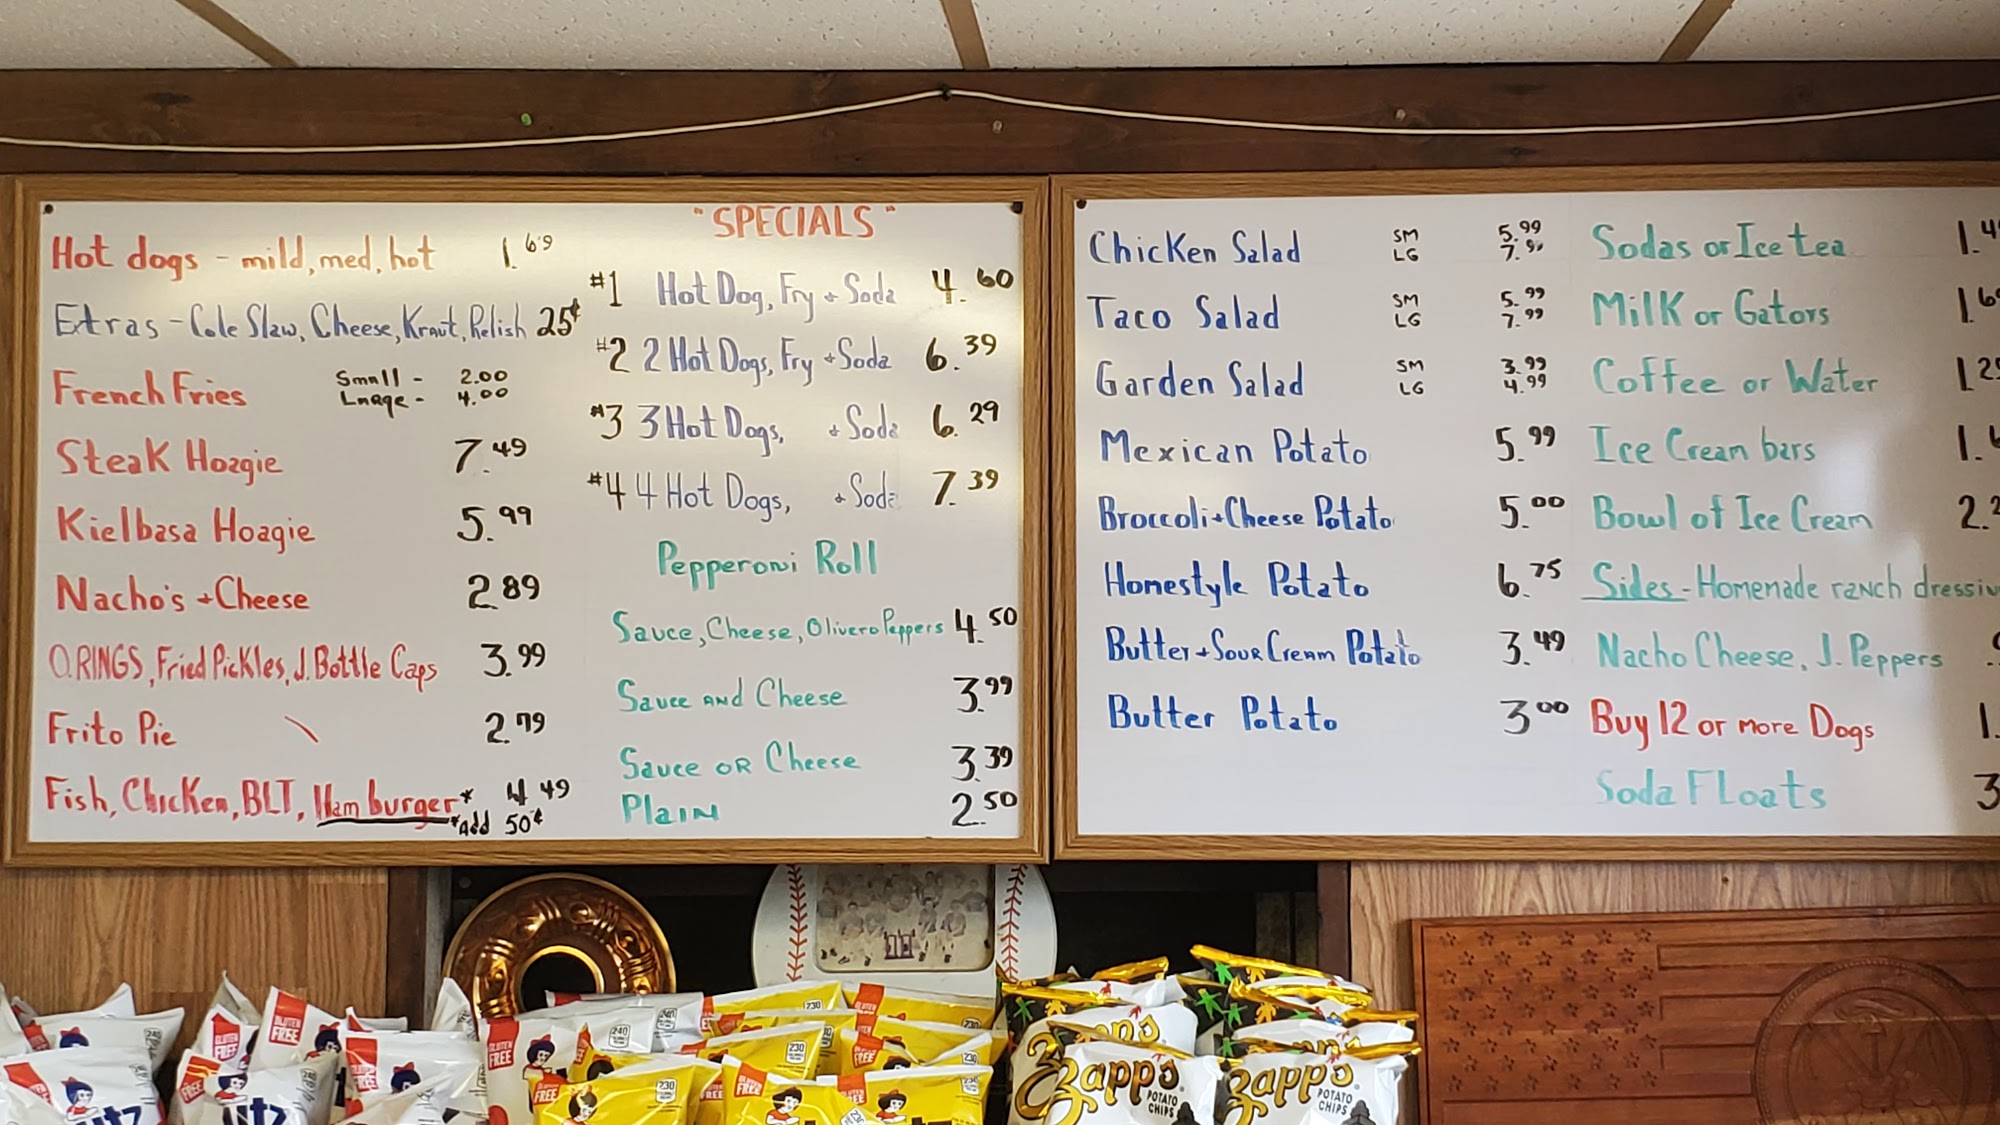 Hot dogs - mild, med, hot 1.69
Extras - Cole Slaw, Cheese, Kraut, Relish 25¢
French Fries Small - 2.00
Lnrge - 4.00
Steak Hoagie 7.49
Kielbasa Hoagie 5.99
Nacho's + Cheese 2.89
O.RINGS, Fried Pickles, J. Bottle Caps 3.99
Frito Pie 2.79
Fish, Chicken, BLT, Hamburger* 4.49
*Add 50¢
"SPECIALS"
#1 Hot Dog, Fry + Soda 4.60
#2 2 Hot Dogs, Fry + Soda 6.39
#3 3 Hot Dogs, + Soda 6.29
#4 4 Hot Dogs, + Soda 7.39
Pepperoni Roll
Sauce, Cheese, Olivero Peppers 4.50
Sauce AND Cheese 3.99
Sauce OR Cheese 3.39
Plain 2.50
Chicken Salad SM 5.99
LG 7.99
Taco Salad SM 5.99
LG 7.99
Garden Salad SM 3.99
LG 4.99
Mexican Potato 5.99
Broccoli + Cheese Potato 5.00
Homestyle Potato 6.75
Butter + Sour Cream Potato 3.49
Butter Potato 3.00
Sodas or Ice tea 1.4
Milk or Gators 1.6
Coffee or Water 1.2
Ice Cream bars 1.
Bowl of Ice Cream 2.2
Sides - Homemade ranch dressin
Nacho Cheese, J. Peppers
Buy 12 or more Dogs 1.
Soda Floats 3
GLUTEN FREE
GLUTEN FREE
GLUTEN FREE
GLUTEN FREE
FREE
FREE
240
230
230
230
230
230
Zapp's
POTATO CHIPS
Zapp's
POTATO CHIPS